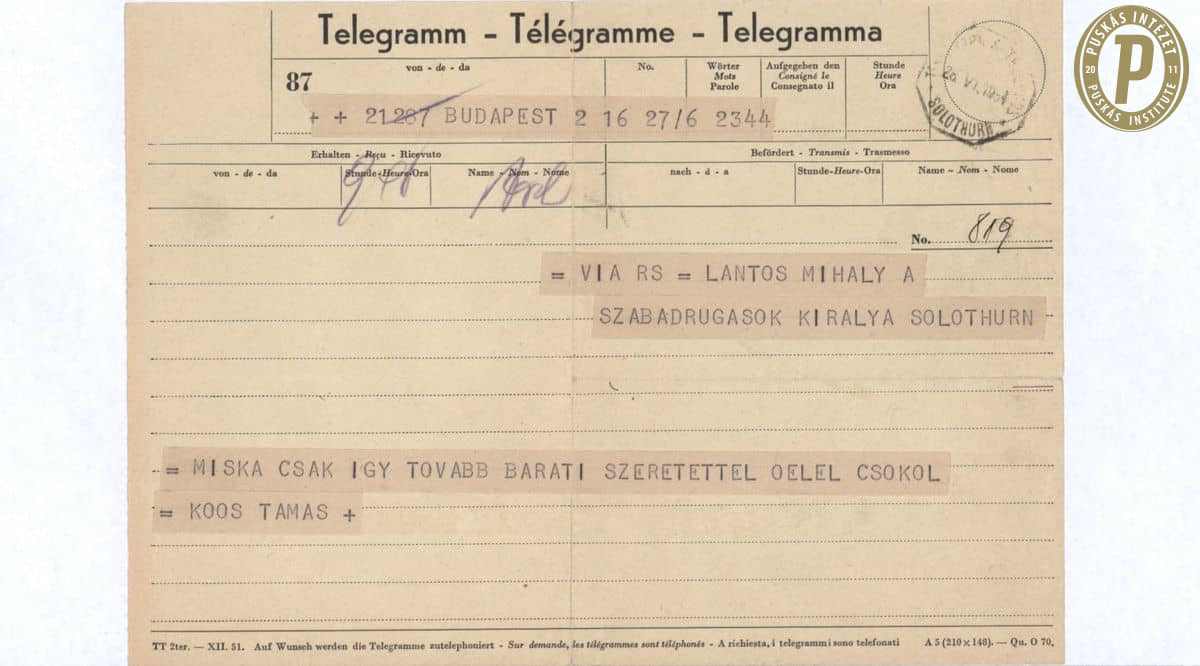 Telegramm – Télégramme – Telegramma
PUSKÁS INTÉZET
20 P 11
PUSKÁS INSTITUTE
87
von - de - da
No.
Wörter
Mots
Parole
Aufgegeben den
Consigné le
Consegnato il
Stunde
Heure
Ora
+ + 21287 BUDAPEST 2 16 27/6 2344
28. VI. 1954
SOLOTHURN
Erhalten - Reçu - Ricevuto
Befördert - Transmis - Trasmesso
von - de - da
Stunde-Heure-Ora
Name - Nom - Nome
nach - à - a
Stunde-Heure-Ora
Name - Nom - Nome
No. 819
= VIA RS = LANTOS MIHALY A
SZABADRUGASOK KIRALYA SOLOTHURN
= MISKA CSAK IGY TOVABB BARATI SZERETETTEL OELEL CSOKOL
= KOOS TAMAS +
TT 2ter. — XII. 51. Auf Wunsch werden die Telegramme zutelephoniert - Sur demande, les télégrammes sont téléphonés - A richiesta, i telegrammi sono telefonati A 5 (210×148). — Qu. O 70.